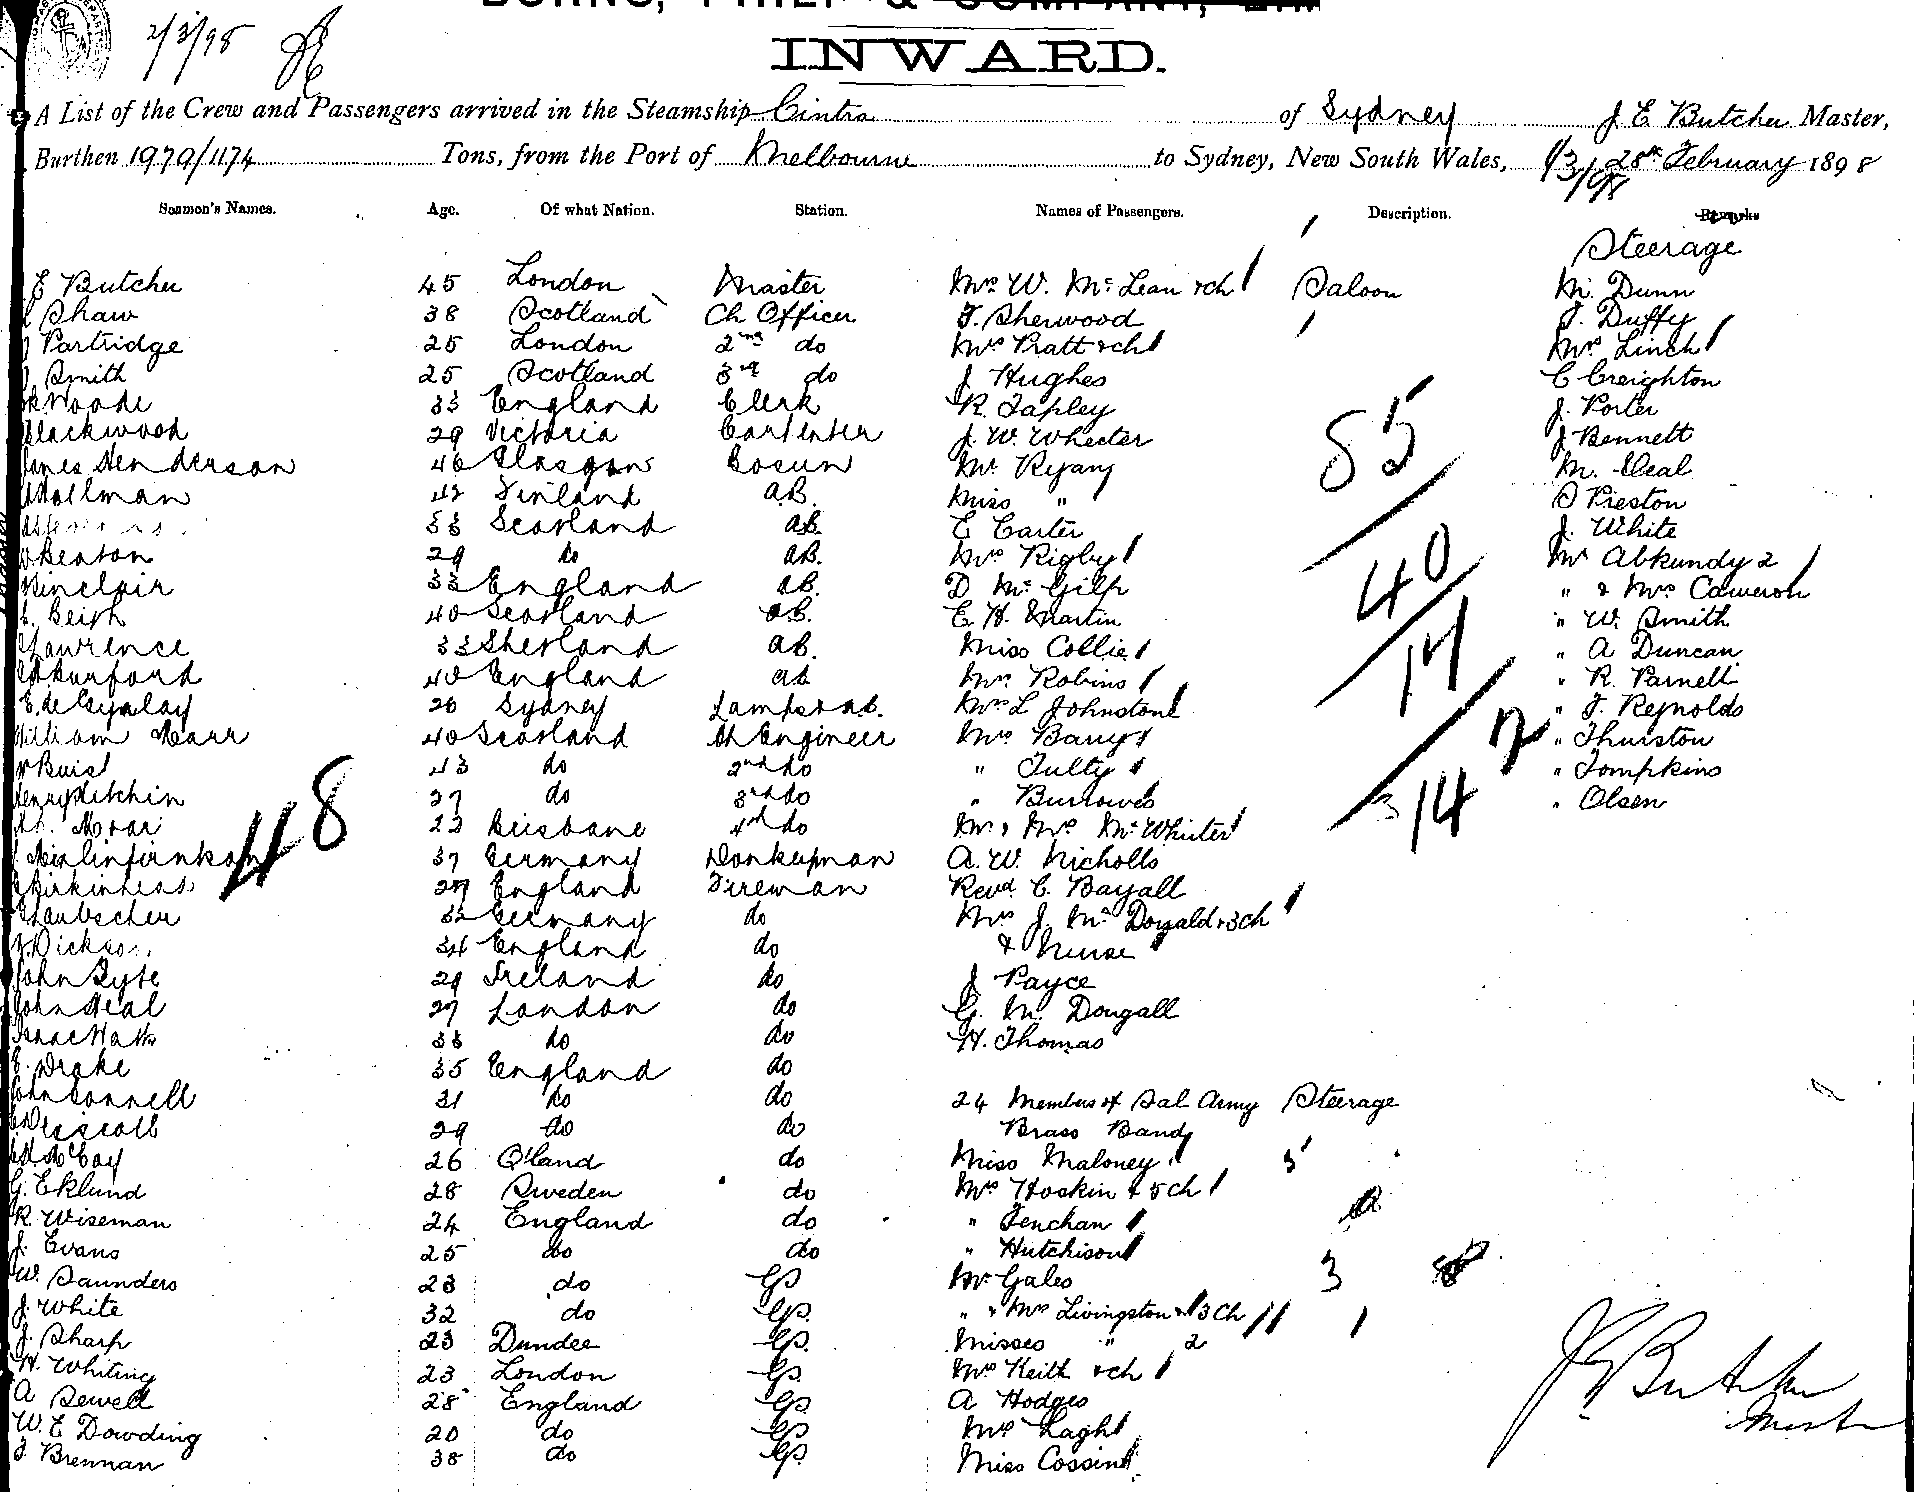 BURNS, PHILP & COMPANY, LTD
2/3/98
INWARD.
A List of the Crew and Passengers arrived in the Steamship Cintra of Sydney J E Butcher Master,
Burthen 1979/1174 Tons, from the Port of Melbourne to Sydney, New South Wales, 1/3/98 28th February 1898
Seamen's Names. Age. Of what Nation. Station. Names of Passengers. Description. Remarks
Steerage
E Butcher 45 London Master Mrs W. McLean & ch Saloon M. Dunn
Shaw 38 Scotland Ch Officer F. Sherwood J. Duffy
Partridge 25 London 2nd do Mrs Pratt & ch Mrs Linch
Smith 25 Scotland 3rd do J Hughes C Creighton
33 England Clerk R. Tapley J. Porter
Blackwood 29 Victoria Carpenter J. W. Wheeler J Bennett
James Henderson 46 Glasgow Bosun Mr Ryan M. Deal
Hallman 42 Finland A.B. Miss " S Preston
33 Scotland ab. E Carter J. White
Beaton 29 do aB. Mrs Rigby Mr Abkundy 2
Sinclair 33 England aB. D McGilp " & Mrs Cameron
Beith 40 Scotland aB. E H. Martin " W. Smith
Lawrence 33 Shetland aB. Miss Collie " A Duncan
40 England ab Mrs Robins " R. Parnell
E. de 26 Sydney Lamps & ab. Mrs L Johnstone " F. Reynolds
William Marr 40 Scotland Ch Engineer Mrs Barry " Thurston
Buist 43 do 2nd do " Tulty " Tompkins
Henry Kitchin 27 do 3rd do " Burrowes " Olsen
23 Brisbane 4th do Mr & Mrs McWhirter
37 Germany Donkeyman A. W. Nicholls
Birkinhead 27 England Fireman Revd C. Bayall
Laubscher 32 Germany do Mrs J. McDonald & 3 ch
Dickson 34 England do & Nurse
John Syte 29 Ireland do J Payce
John Neal 27 London do G. M. Dougall
Isaac Watts 33 do do H. Thomas
E. Drake 35 England do
John Connell 31 do do 24 Members of Sal Army Steerage
Driscoll 29 do do Brass Band
McCoy 26 Q'land do Miss Maloney 3
G. Eklund 28 Sweden do Mrs Hoskin & 5 ch
R. Wiseman 24 England do " Fenchan
J. Evans 25 do do " Hutchison
W. Saunders 23 do Mr Gales 3
J. White 32 do " & Mrs Livingston & 3 Ch
J. Sharp 23 Dundee Misses " 2
H. Whiting 23 London Mrs Keith & ch
A Sewell 28 England A Hodges
W. E Dowding 20 do Mrs Laght
J Brennan 38 do Miss Cossins
48
85
40
17
2
14
J E Butcher
Master